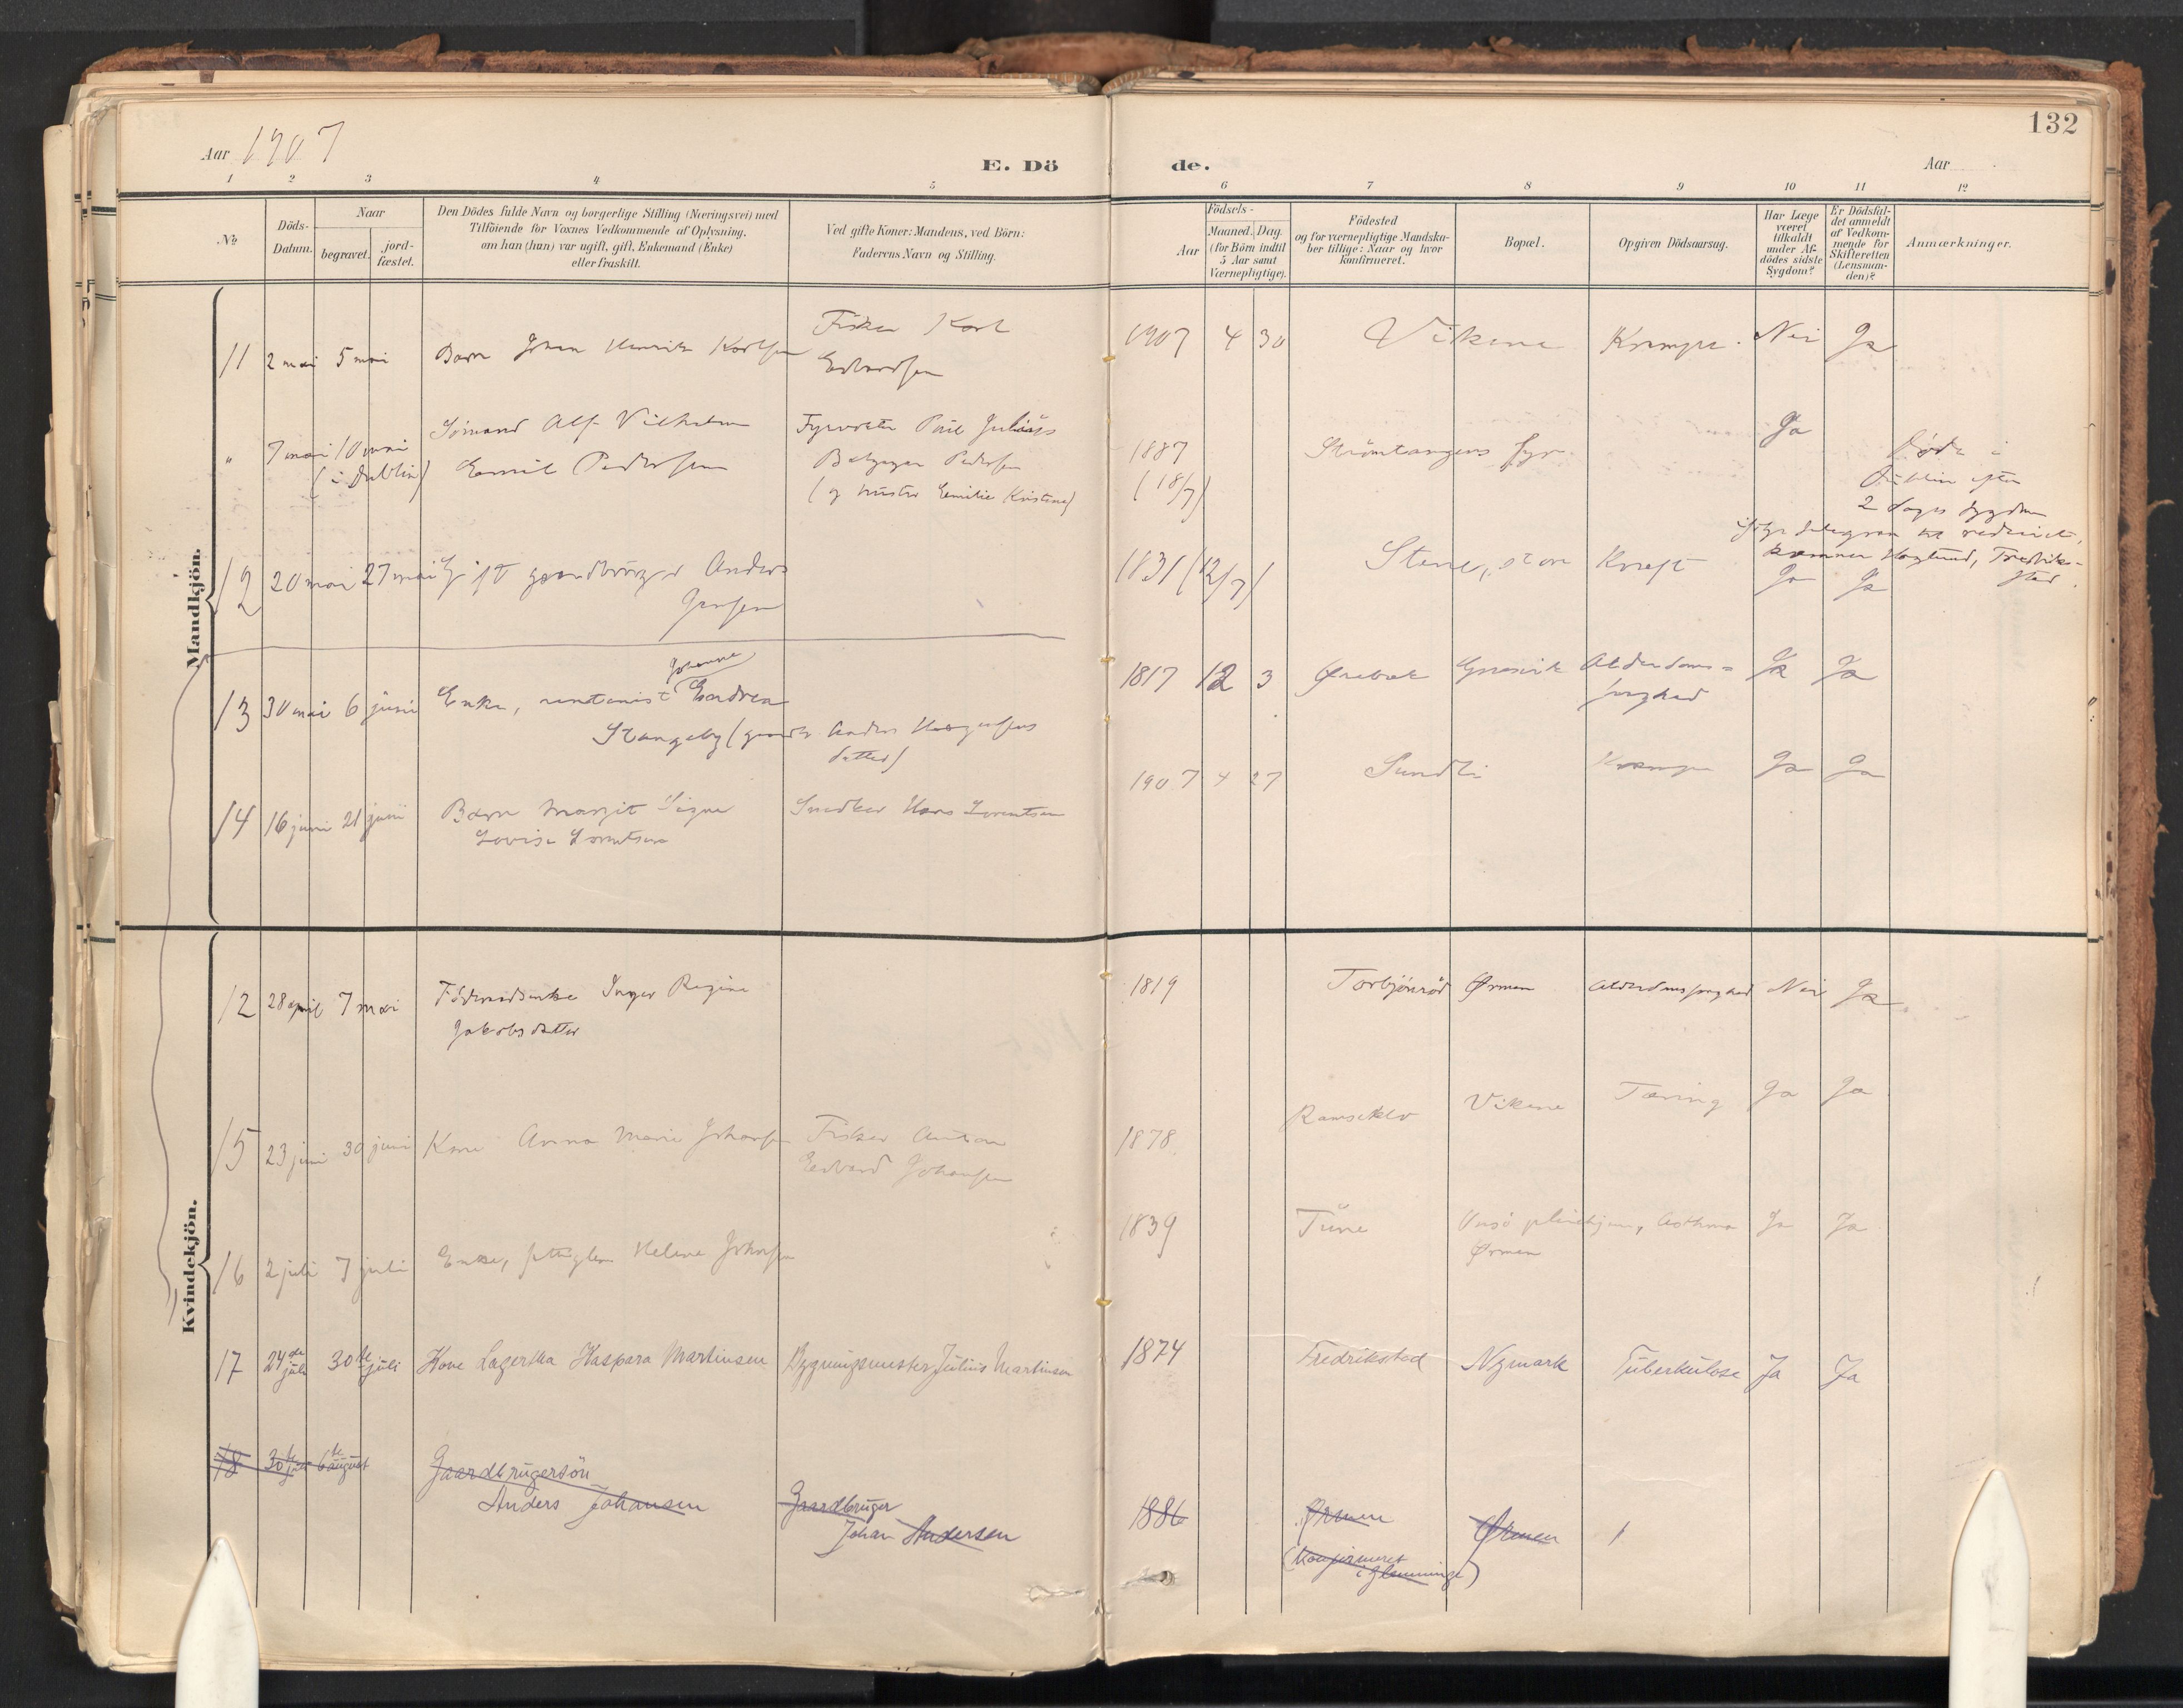 132
Aar 1907
E. Dö
de.
Aar
1 2 3 4 5 6 7 8 9 10 11 12
No
Döds-
Datum.
Naar
begravet.
jord-
fæstet.
Den Dödes fulde Navn og borgerlige Stilling (Næringsvei) med
Tilföiende for Voxnes Vedkommende af Oplysning,
om han (hun) var ugift, gift, Enkemand (Enke)
eller fraskilt.
Ved gifte Koner: Mandens, ved Börn:
Faderens Navn og Stilling.
Födsels-
Aar
Maaned. Dag.
(for Börn indtil
5 Aar samt
Værnepligtige).
Födested
og for værnepligtige Mandska-
ber tillige: Naar og hvor
konfirmeret.
Bopæl.
Opgiven Dödsaarsag.
Har Læge
været
tilkaldt
under Af-
dödes sidste
Sygdom?
Er Dödsfal-
det anmeldt
af Vedkom-
mende for
Skifteretten
(Lensman-
den)?
Anmærkninger.
Mandkjön.
11 2 mai 5 mai Barn Johan Henrik Karlsen
Fisker Karl
Edvardsen
1907 4 30 Vikene Krampe. Nei Ja
" 7 mai 10 mai
(i Dublin)
Sömand Alf Vilhelm
Emil Pedersen
Fyrvokter Paul Julius
Pedersen
(og hustru Emilie Kristine)
1887
(18/7)
Strömtangens fyr
Ja
Döde i
Dublin efter
2 dages sygdom
ifölge telegram
Haglund, Fredrik-
stad.
12 20 mai 27 mai Gift gaardbruger Anders
Jensen
1831 (12/7) Stene, Kræft Ja Ja
13 30 mai 6 juni Enke, rentenist Johanne Andrea
Stangeby (gaardb. Anders
datter)
1817 12 3 Ørebæk Gressvik Alderdoms-
svaghed
Ja Ja
14 16 juni 21 juni Barn Margit Signe
Lovise Lorentsen
Snedker Hans Lorentsen
1907 4 27 Sundli Krampe Ja Ja
Kvindekjön.
12 28 april 7 mai Födraadsenke Inger Regine
Jakobsdatter
1819 Torbjönröd Ørmen Alderdomssvaghed Nei Ja
15 23 juni 30 juni Kone Anna Marie Johansen
Fisker Anton
Edvard Johansen
1878 Ramseklov Vikene Tæring Ja Ja
16 2 juli 7 juli Enke, Helene Johansen
1839 Tune Onsö pleiehjem,
Ørmen
Asthma Ja Ja
17 24de juli 30te juli Kone Lagertha Kaspara Martinsen Bygningsmester Julius Martinsen
1874 Fredrikstad Nymark Tuberkulose Ja Ja
18 30te juli 6te august Gaardbrugersön
Anders Johansen
Gaardbruger
Johan Andersen
1886 Ørmen
(Konfirmeret
i Glemminge)
Ørmen